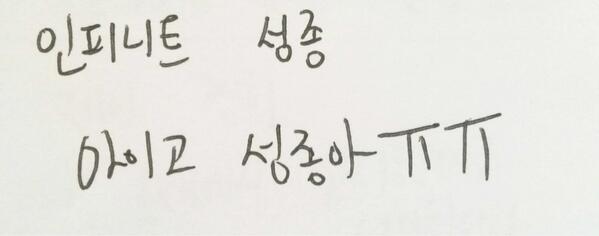 인피니트 성종
아이고 성종아 ㅠㅠ